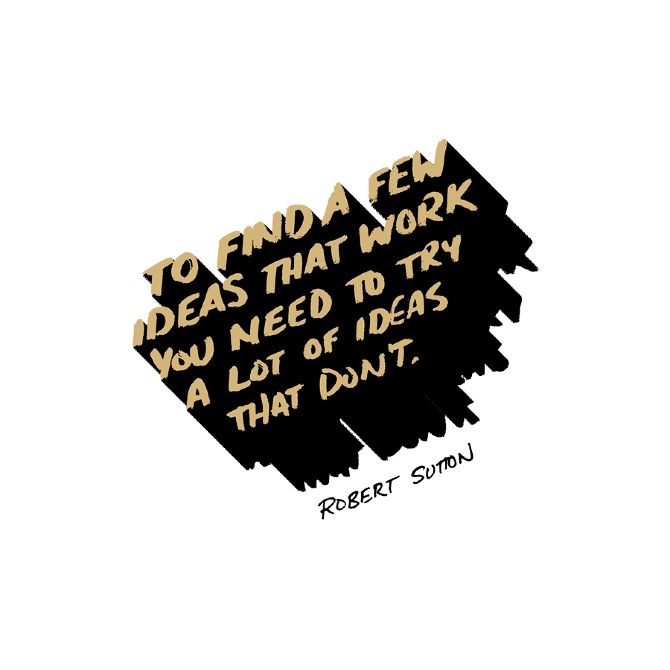 TO FIND A FEW
IDEAS THAT WORK
YOU NEED TO TRY
A LOT OF IDEAS
THAT DON'T.
ROBERT SUTTON